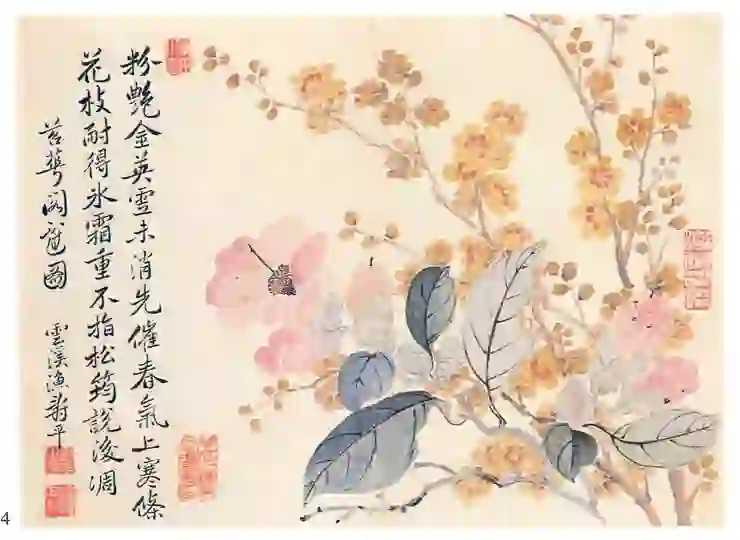 粉艶金英雪未消先催春氣上寒條
花枝耐得氷霜重不指松筠說後凋
苕華閣圖 雲溪漁壽平
4